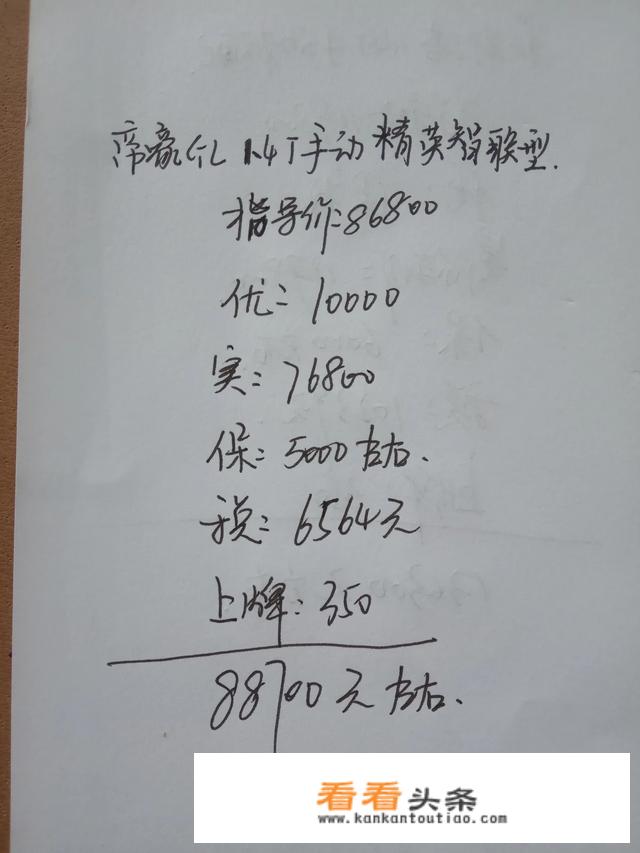 帝豪GL 1.4T手动精英智联型.
指导价:86800
优:10000
实:76800
保:5000左右.
税:6564元
上牌:350
88700元左右.
看看头条
www.kankantoutiao.com